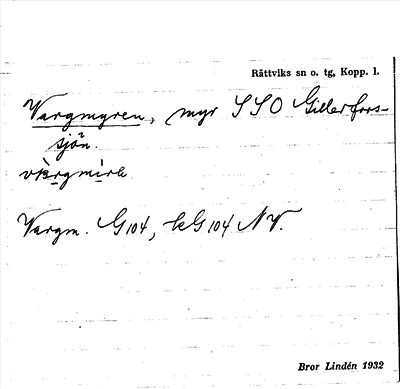 Rättviks sn o. tg, Kopp. l.
Vargmyren, myr SSO Gillerfors-
sjön.
Vargm. G104, kG104 NV.
Bror Lindén 1932